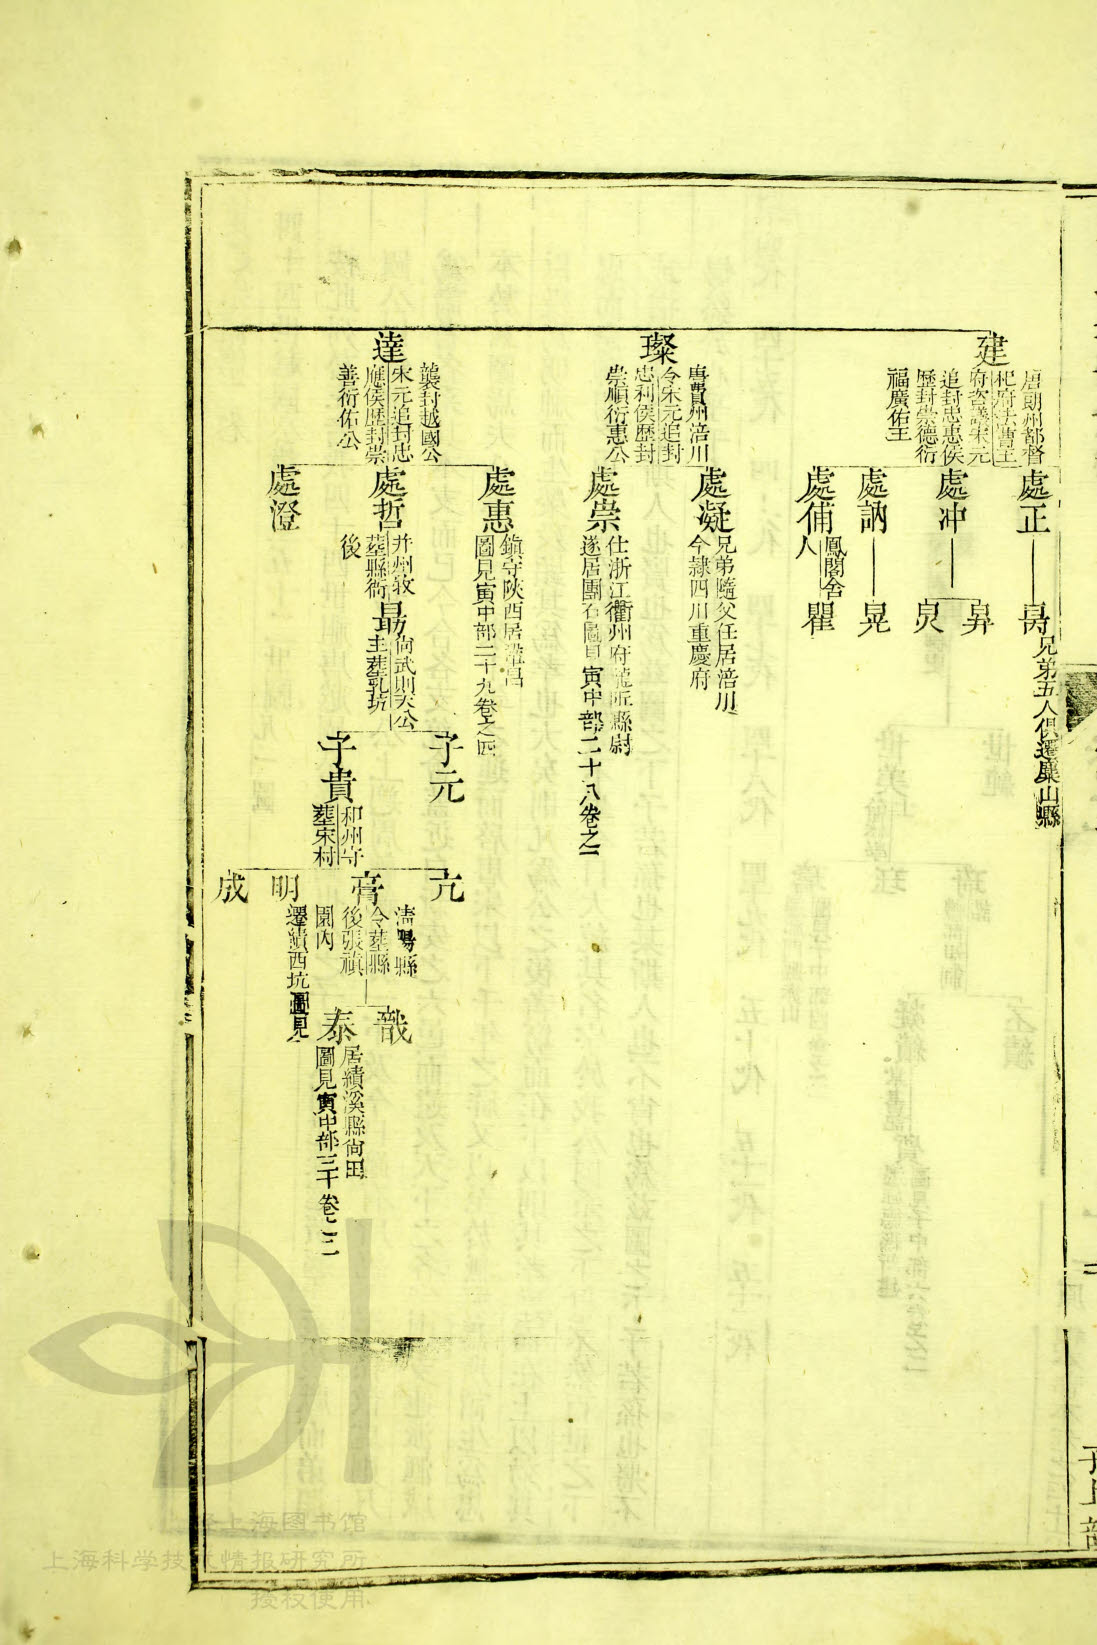 建
唐朗州都督
杞府法曹王
府咨議宋元
追封忠惠侯
歷封崇德衍
福廣佑王
璨
唐費州涪川
令宋元追封
忠利侯歷封
崇順衍惠公
達
襲封越國公
宋元追封忠
應侯歷封崇
善衍佑公
處正
處冲
處訥
處俌
鳳閣舍
人
處凝
兄弟隨父任居涪川
今隷四川重慶府
處崇
仕浙江衢州府龍丘縣尉
遂居團石圖見寅中部二十八卷之一
處惠
鎮守陝西居
圖見寅中部二十九卷之四
處哲
并州敎
葬縣衙
後
處澄
兄弟五人俱遷麋山縣
昇
炅
晃
瞿
勗
尙武則天公
主葬乳坑
子元
子貴
和州守
葬宋村
亢
膏
淸陽縣
令葬縣
後張禛
園內
明
遷績西坑圖見
成
戠
泰
居績溪縣尙田
圖見寅中部三十卷之二
上海图书馆
上海科学技术情报研究所
授权使用